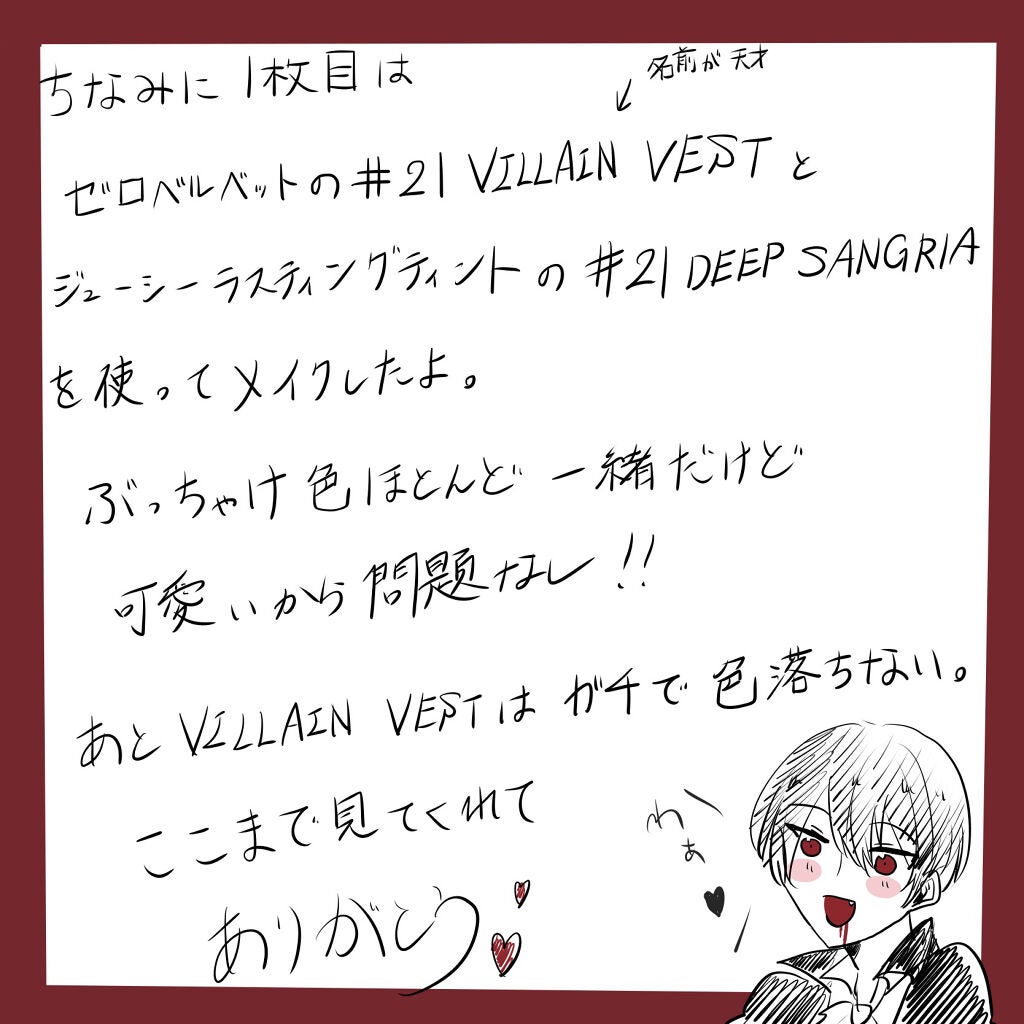 ちなみに 1枚目は
名前が天才
ゼロベルベットの#21 VILLAIN VESTと
ジューシーラスティングティントの#21 DEEP SANGRIA
を使ってメイクしたよ。
ぶっちゃけ色ほとんど一緒だけど
可愛いから問題なし!!
あとVILLAIN VESTはガチで色落ちない。
ここまで見てくれて
ありがとう
わぁ